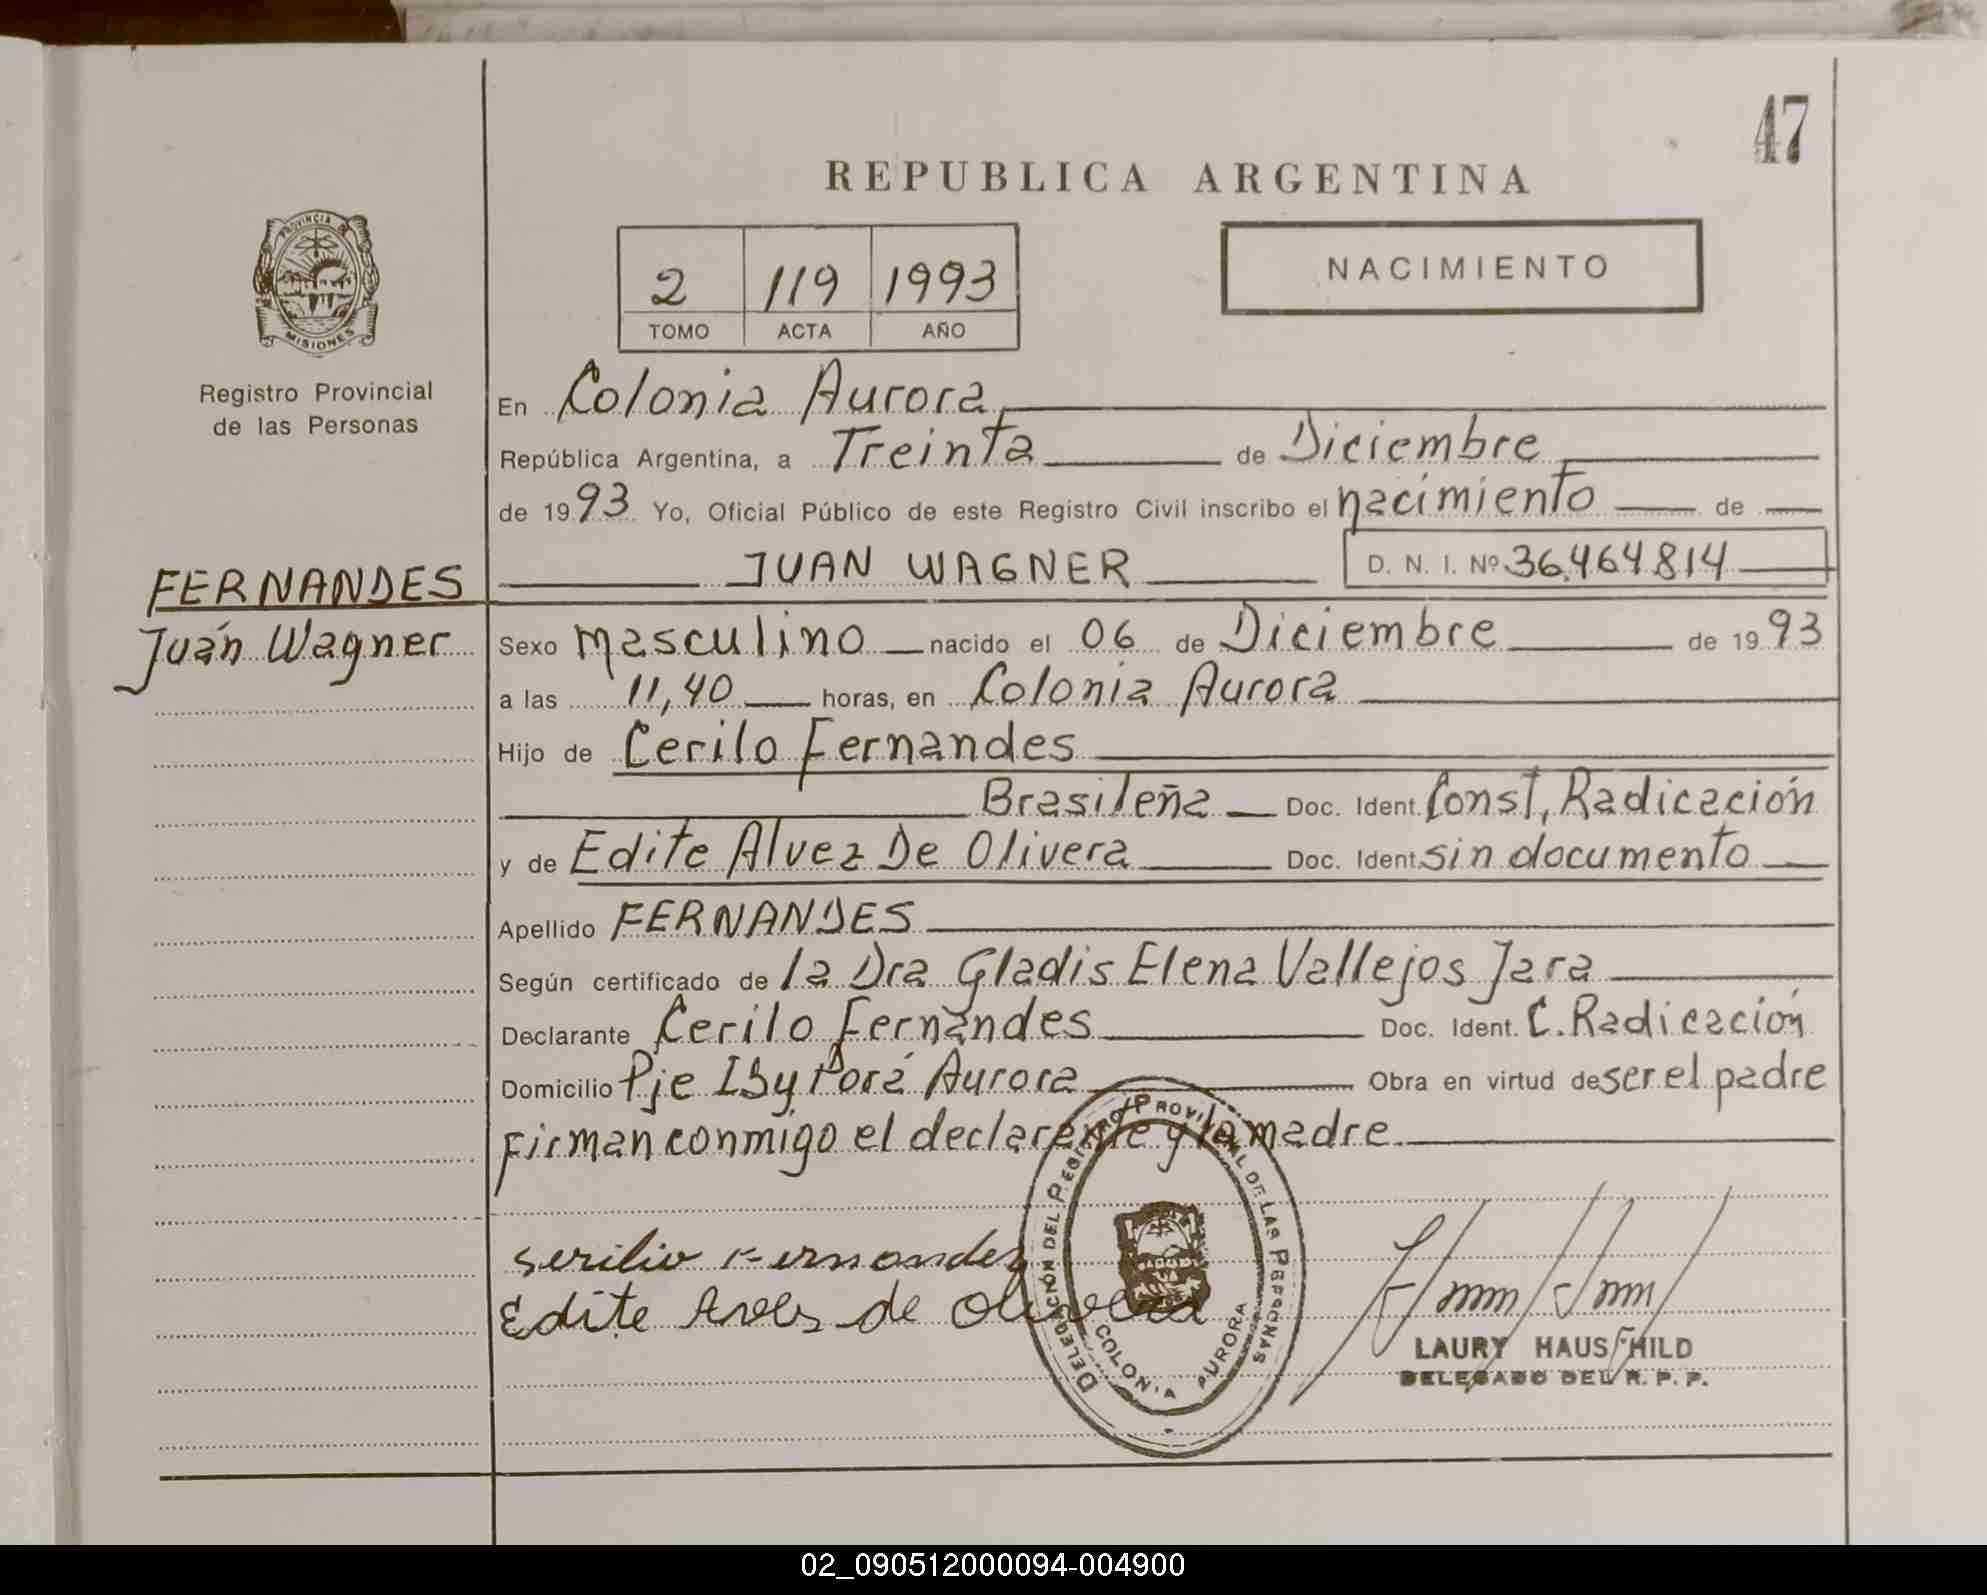 47
REPUBLICA ARGENTINA
PROVINCIA DE
MISIONES
Registro Provincial
de las Personas
2 119 1993
TOMO ACTA AÑO
NACIMIENTO
En Colonia Aurora
República Argentina, a Treinta de Diciembre
de 1993 Yo, Oficial Público de este Registro Civil inscribo el nacimiento de
JUAN WAGNER D. N. I. Nº 36.464.814
FERNANDES
Juan Wagner
Sexo Masculino nacido el 06 de Diciembre de 1993
a las 11,40 horas, en Colonia Aurora
Hijo de Cerilo Fernandes
Brasileña Doc. Ident. Const, Radicación
y de Edite Alvez De Olivera Doc. Ident. sin documento
Apellido FERNANDES
Según certificado de la Dra Gladis Elena Vallejos Jara
Declarante Cerilo Fernandes Doc. Ident. C. Radicación
Domicilio Pje IByPorá Aurora Obra en virtud de ser el padre
Firman conmigo el declarante y la madre
serilio Fernandez
Edite Aves de Olivera
DELEGACIÓN DEL REGISTRO PROVINCIAL DE LAS PERSONAS
COLONIA AURORA
LAURY HAUSCHILD
DELEGADO DEL R. P. P.
02_090512000094-004900